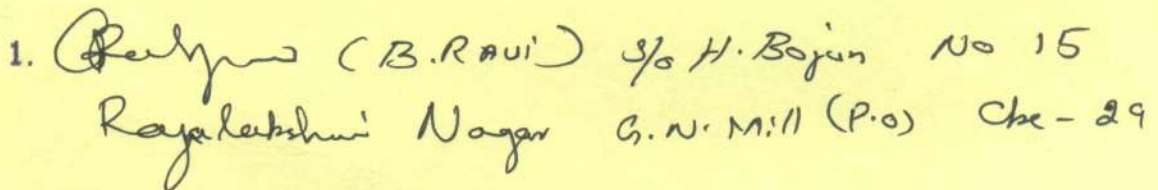 1. (B.RAVI) S/o H.Bojan No 15
Rajalakshmi Nagar G.N. Mill (P.O) Cbe - 29